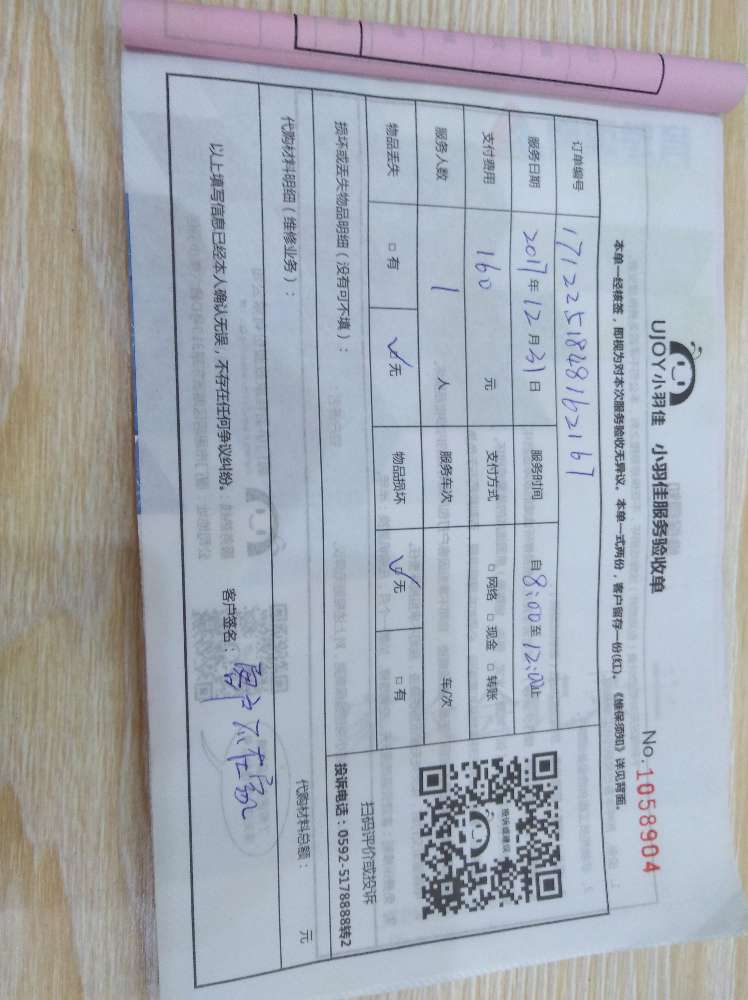 UJOY小羽佳 小羽佳服务验收单 No.1058904
本单一经核签，即视为对本次服务验收无异议。本单一式两份，客户留存一份(红)。《维保须知》详见背面。
订单编号 17122518481162167
服务日期 2017年12月31日 服务时间 自8:00至12:00止
支付费用 160 元 支付方式 □网络 □现金 □转账
服务人数 1 人 服务车次 车/次
物品丢失 □有 ☑无 物品损坏 ☑无 □有
投诉或建议
扫码评价或投诉
投诉电话：0592-5178888转2
损坏或丢失物品明细（没有可不填）：
代购材料明细（维修业务）： 代购材料总额： 元
以上填写信息已经本人确认无误，不存在任何争议纠纷。 客户签名： 客户不在家